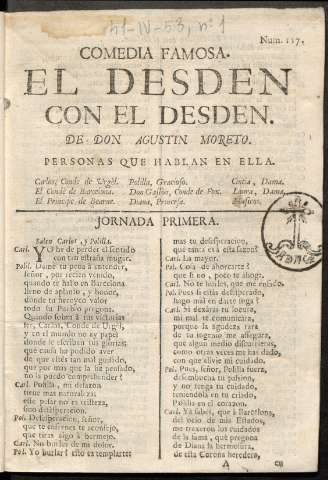 51-IV-53, nº 1
Num. 117.
COMEDIA FAMOSA.
EL DESDEN
CON EL DESDEN.
DE DON AGUSTIN MORETO.
PERSONAS QUE HABLAN EN ELLA.
Carlos, Conde de Urgèl. Polilla, Gracioso. Cintia, Dama.
El Conde de Barcelona. Don Gastòn, Conde de Fox. Laura, Dama.
El Principe de Bearne. Diana, Princesa. Musicos.
JORNADA PRIMERA.
Salen Carlos, y Polilla.
Carl. YO he de perder el sentido
con tan estraña muger.
Pol. Dame tu pena à entender,
señor, por recien venido,
quando te hallo en Barcelona
lleno de aplauso, y honor,
donde tu heroyco valor
todo su Pueblo pregona.
Quando sobra à tus victorias
ser, Carlos, Conde de Urgèl,
y en el mundo no ay papel
donde se escriban tus glorias;
què causa ha podido aver
de que estès tan mal guisado,
que por mas que la he pensado,
no la puedo comprehender?
Carl. Polilla, mi desazon
tiene mas naturaleza;
este pesar no es tristeza,
sino desesperacion.
Pol. Desesperacion, señor,
que te enfrenes te aconsejo,
que tiras algo à bermejo.
Carl. No burles de mi dolor.
Pol. Yo burlar? esto es templarte:
mas tu desesperacion,
què tanta es à esta sazon?
Carl. La mayor.
Pol. Cosa de ahorcarte?
que si no, poco te ahoga.
Carl. No te burles, que me enfado.
Pol. Pues si estàs desesperado,
hago mal en darte soga?
Carl. Si dexàras tu locura,
mi mal te comunicàra,
porque la agudeza rara
de tu ingenio me assegura,
que algun medio discurriera,
como otras veces me has dado,
con que alivie mi cuidado.
Pol. Pues, señor, Polilla fuera,
desembucha tu passion,
y no tenga tu cuidado,
teniendola en tu criado,
Polilla en el corazon.
Carl. Ya sabes, que à Barcelona,
del ocio de mis Estados,
me traxeron los cuidados
de la fama, que pregona
de Diana la hermosura,
de esta Corona heredera,
A en